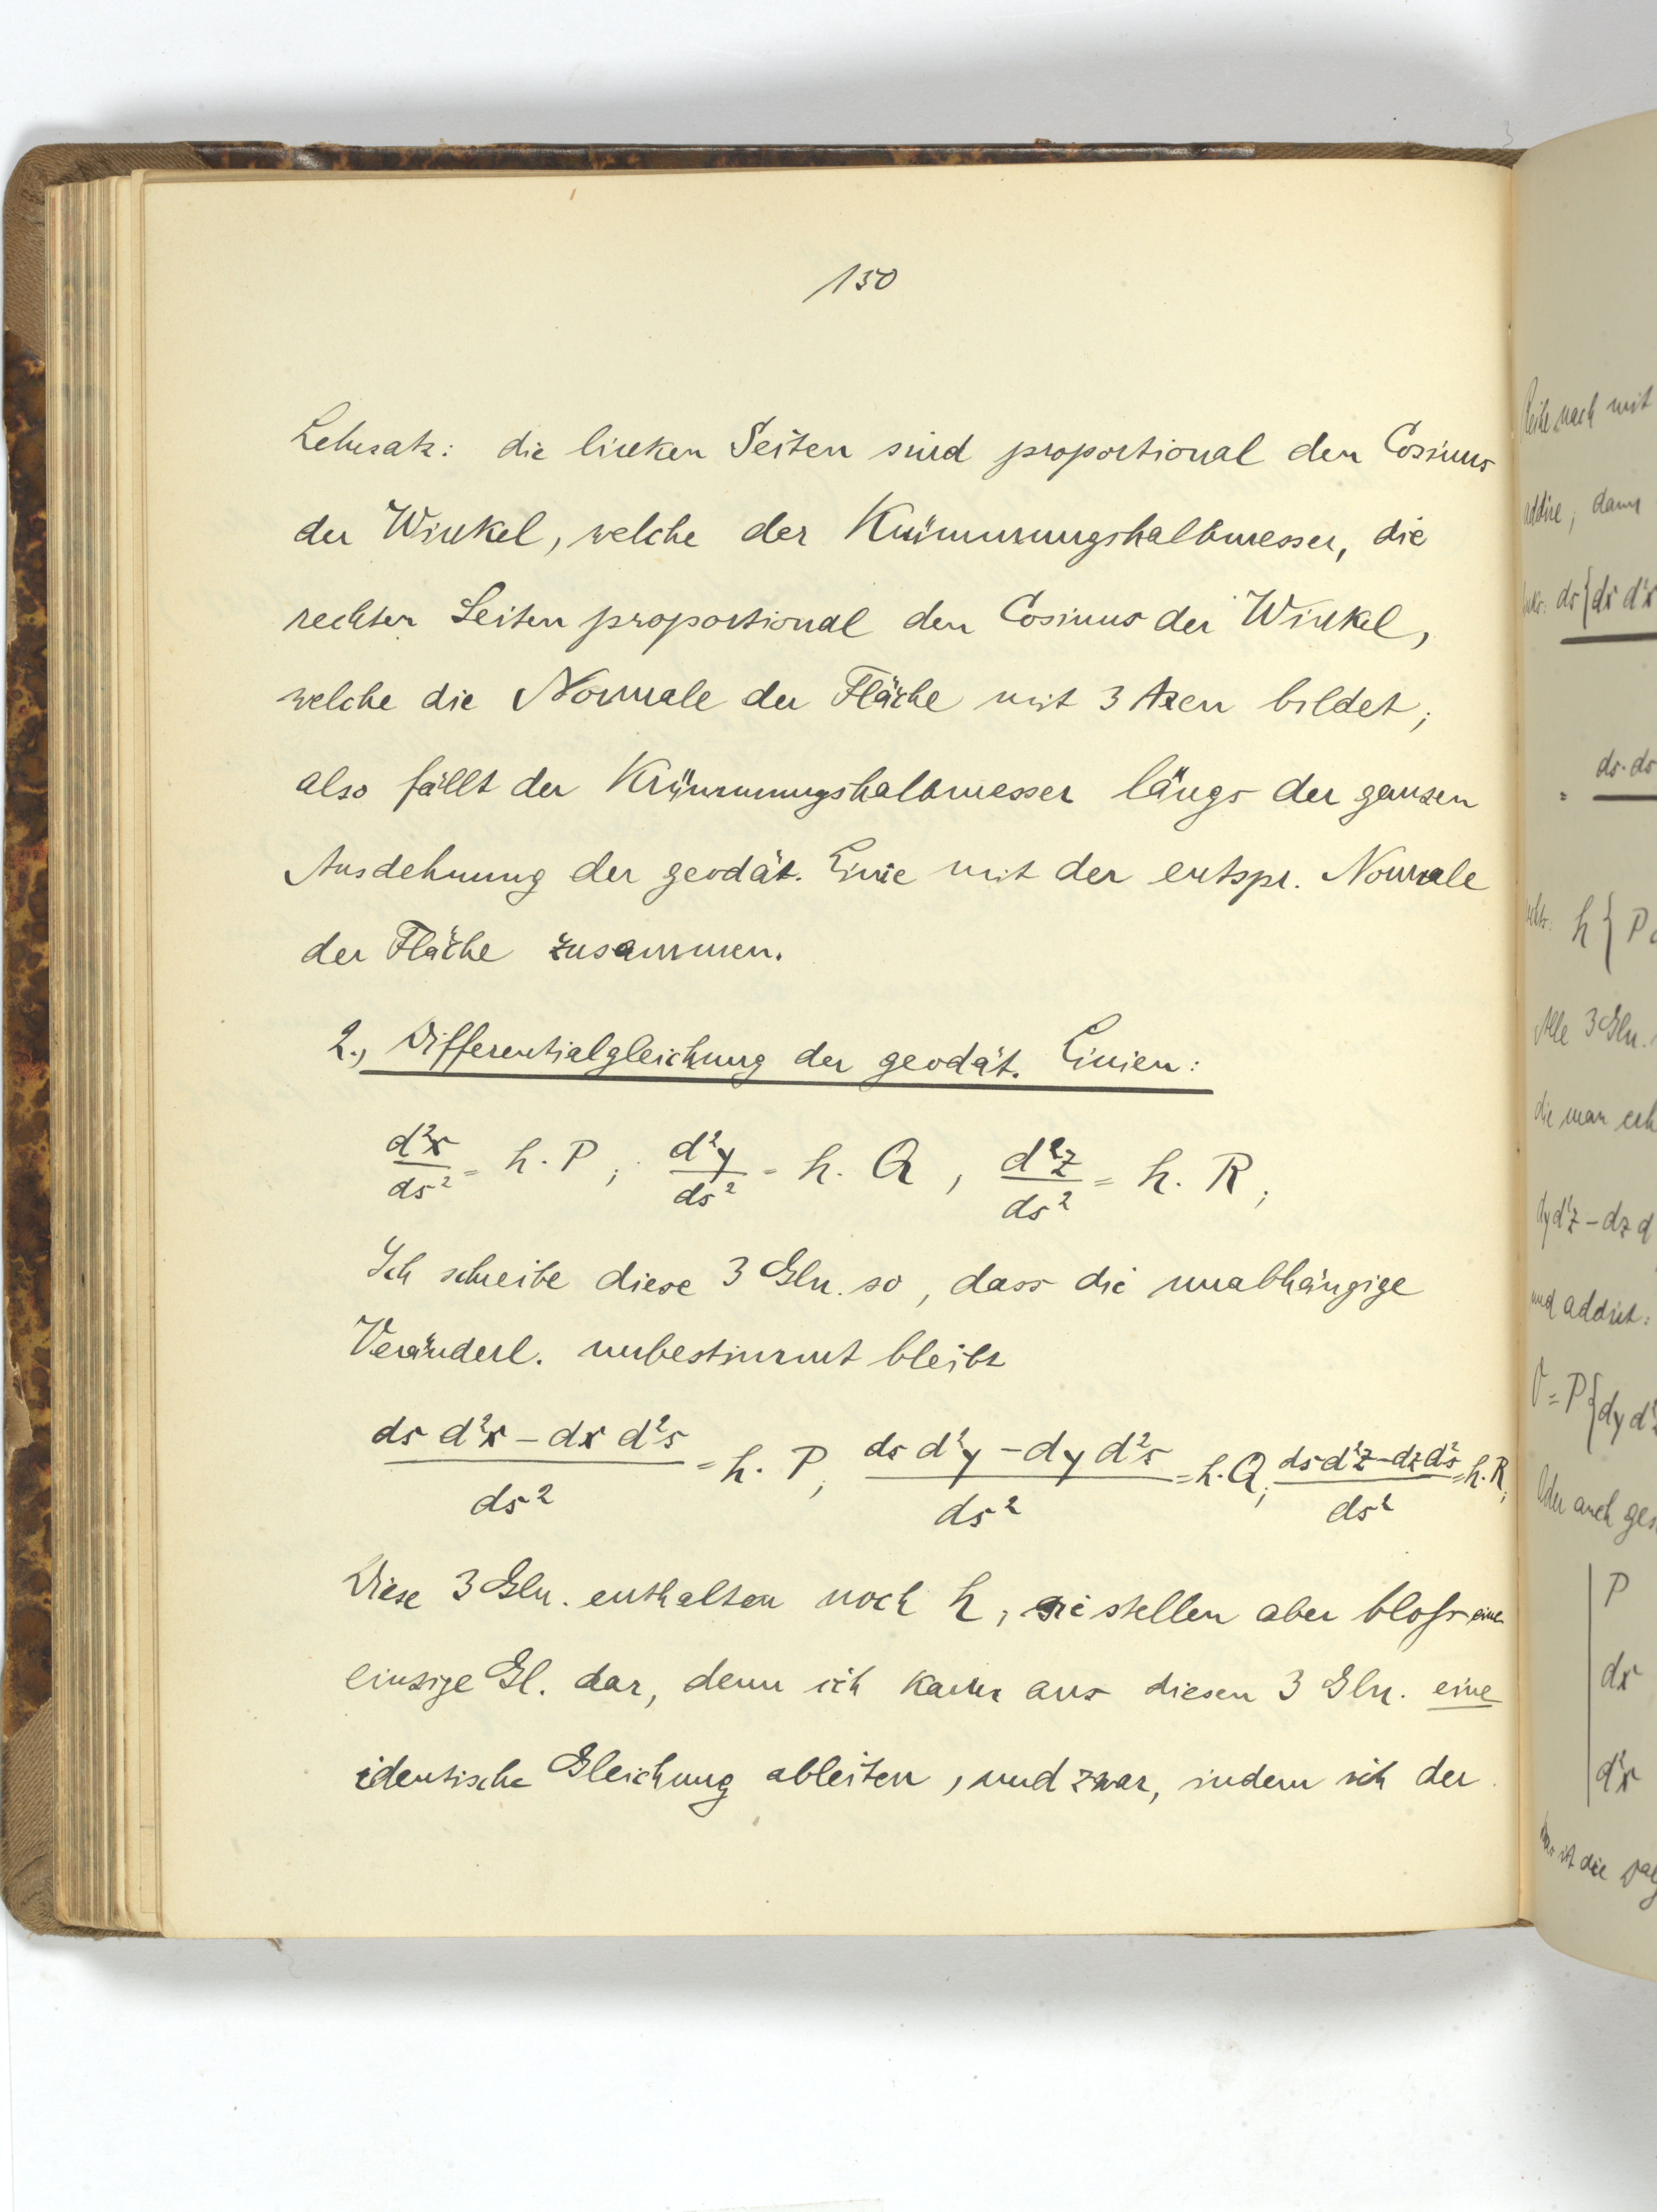 150
Lehrsatz: die linken Seiten sind proportional den Cosinus
der Winkel, welche der Krümmungshalbmesser, die
rechten Seiten proportional den Cosinus der Winkel,
welche die Normale der Fläche mit 3 Axen bildet;
also fällt der Krümmungshalbmesser längs der ganzen
Ausdehnung der geodät. Linie mit der entspr. Normale
der Fläche zusammen.
2., Differentialgleichung der geodät. Linien:
d²x/ds² = h. P; d²y/ds² = h. Q, d²z/ds² = h. R;
Ich schreibe diese 3 Gln. so, dass die unabhängige
Veränderl. unbestimmt bleibt
(ds d²x – dx d²s)/ds² = h. P; (ds d²y – dy d²s)/ds² = h. Q; (ds d²z – dz d²s)/ds² = h. R;
Diese 3 Gln. enthalten noch h, sie stellen aber bloss eine
einzige Gl. dar, denn ich kann aus diesen 3 Gln. eine
identische Gleichung ableiten, und zwar, indem ich der
Reihe nach mit
addire; dann
ds{ds d²x
= ds.ds
h{P
Alle 3 Gln.
die man
dy d²z – dz d
und addirt:
0 = P{dy d²z
Oder auch
P
dx
d²x
ist die